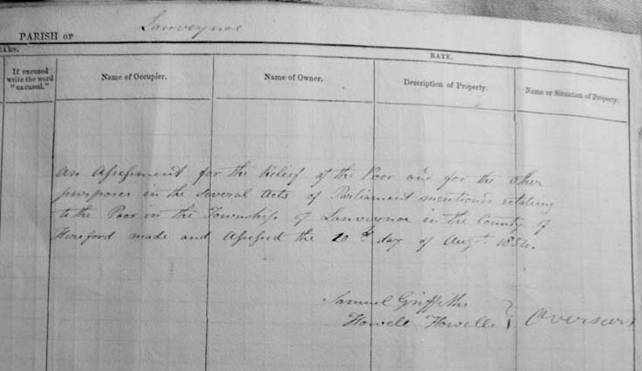 PARISH OF Lanveynoe
EARS.
RATE.
If excused write the word "excused."
Name of Occupier.
Name of Owner.
Description of Property.
Name or Situation of Property.
An Assessment for the Relief of the Poor and for the other
purposes in the several Acts of Parliament mentioned relating
to the Poor in the Township of Lanveynoe in the County of
Hereford made and Assessed the day of Augt
Samuel Griffiths
Howell Howells } Overseers